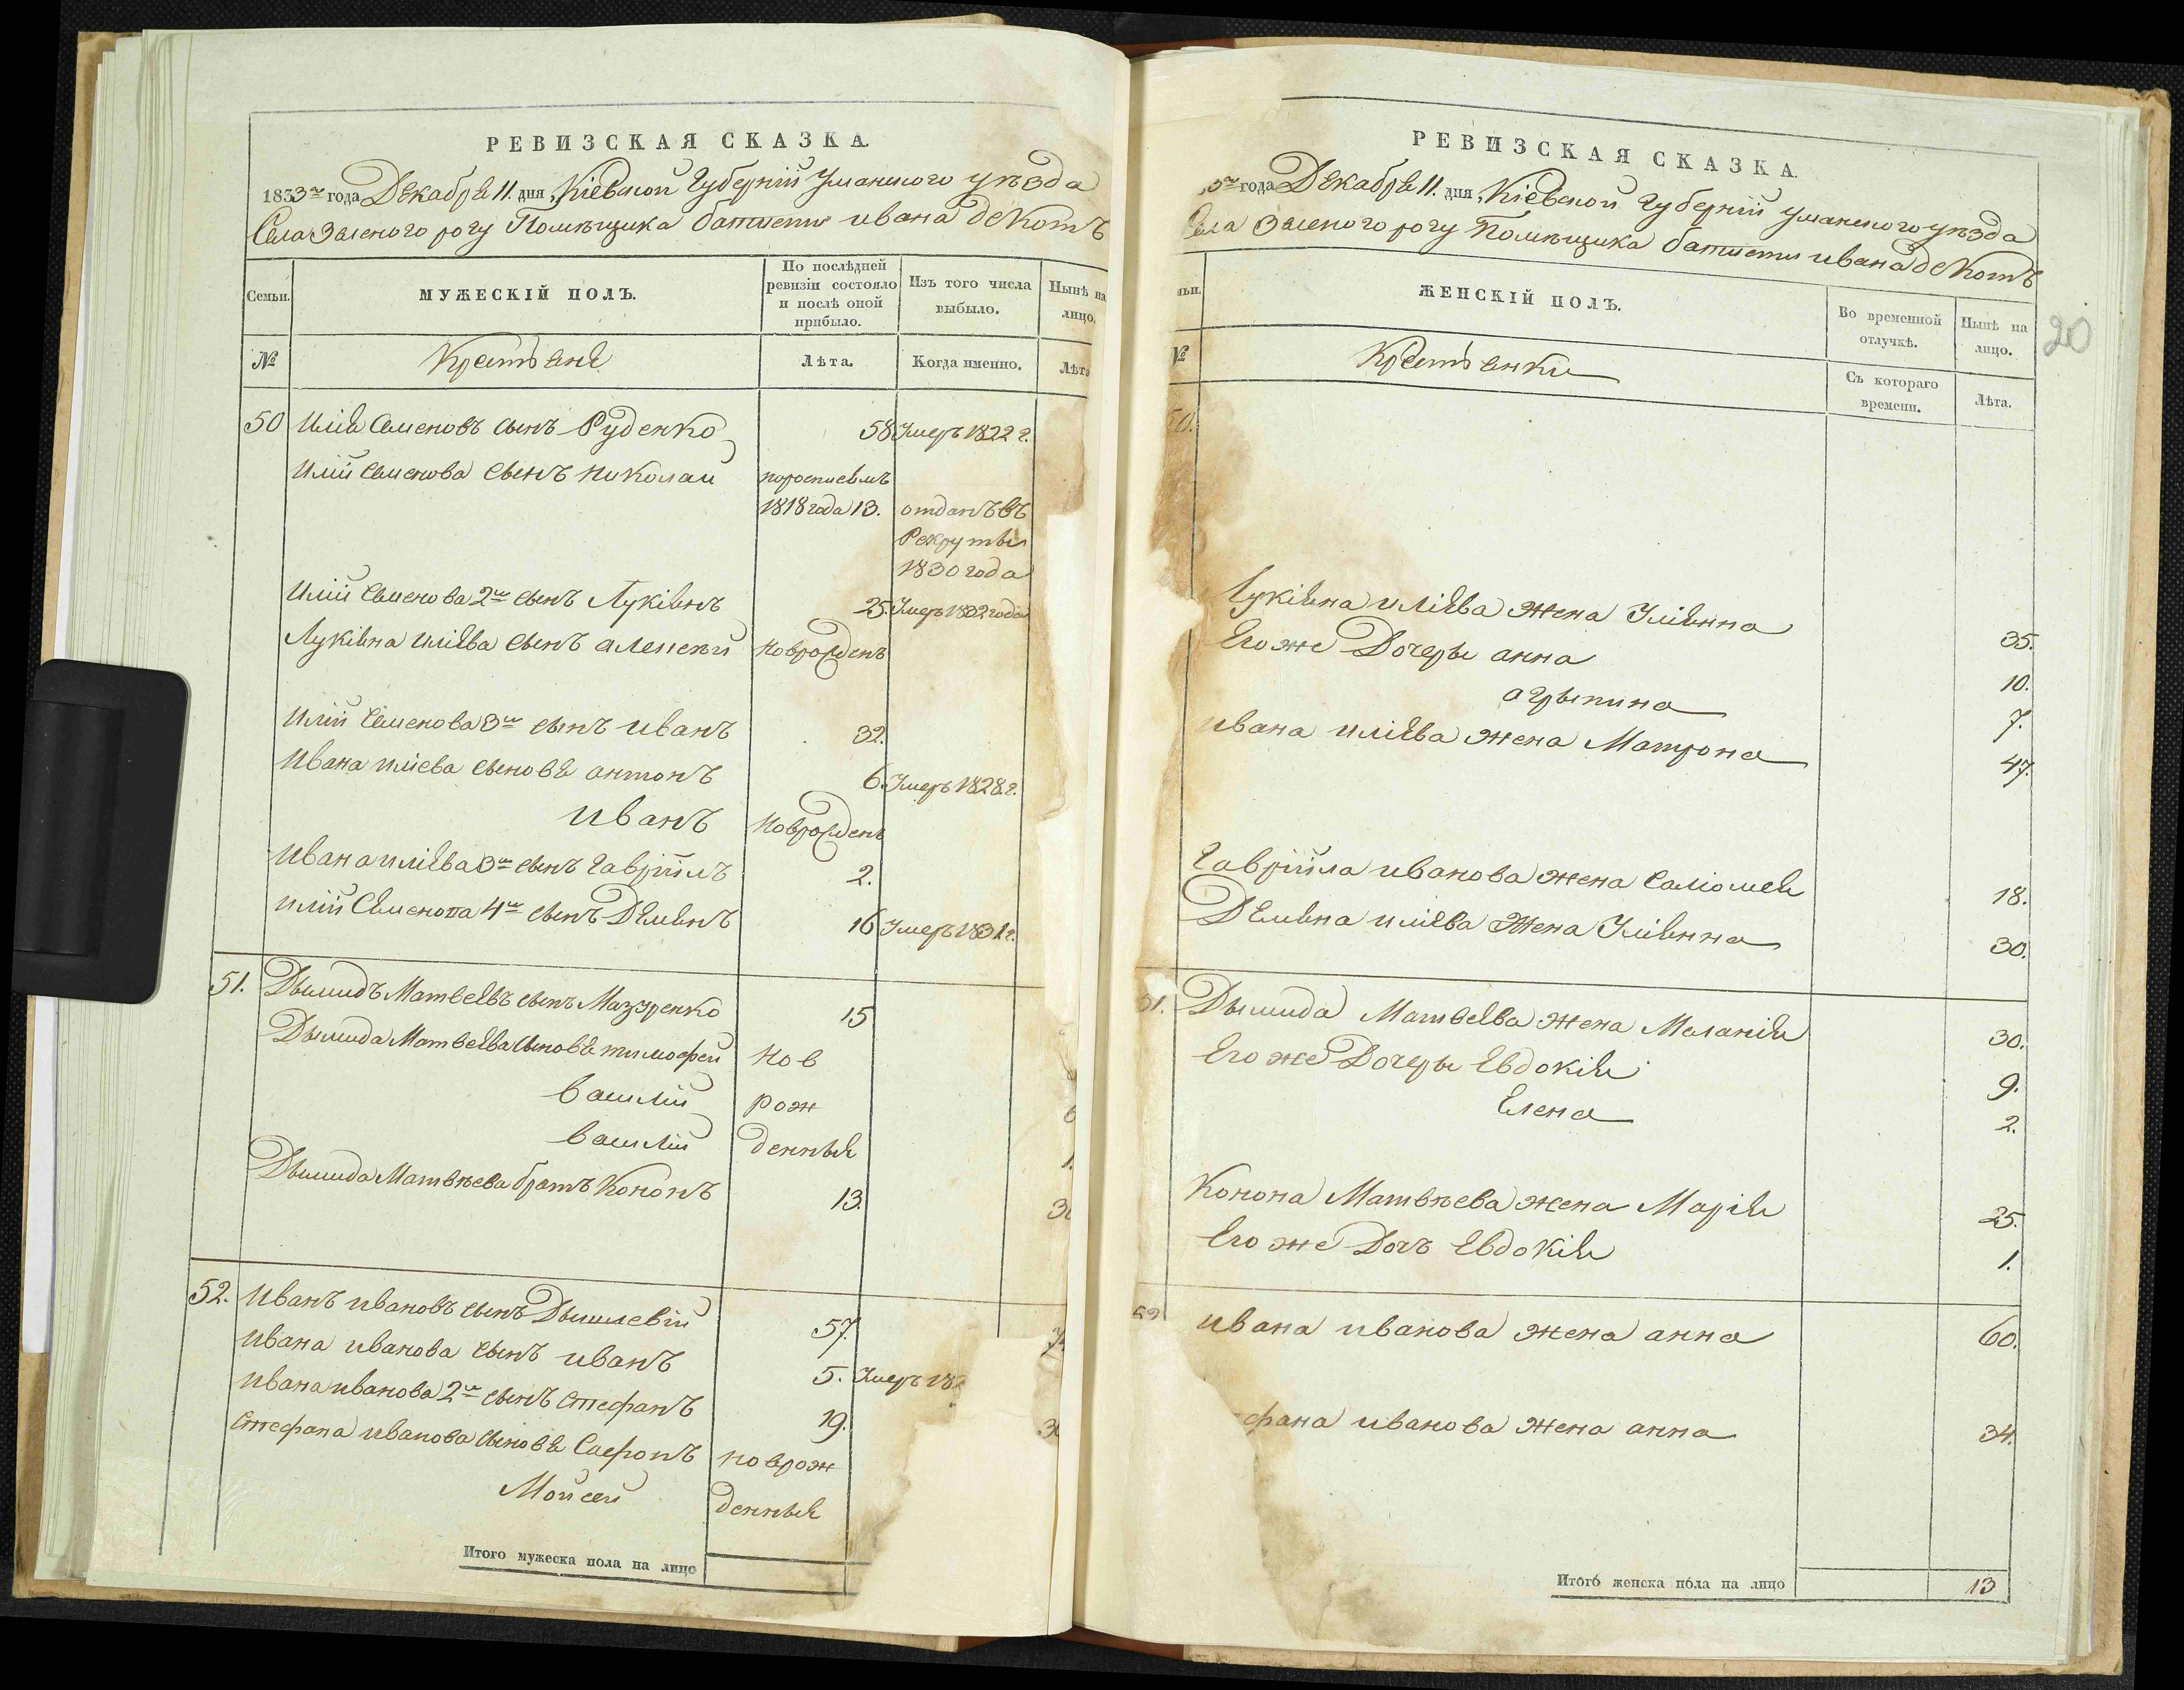 РЕВИЗСКАЯ СКАЗКА.
1833го года Декабря 11. дня, Кіевской Губерніи Уманского уѣзда
Села Зеленого рогу Помѣщика батисти ивана декотъ
Семьи.
МУЖЕСКІЙ ПОЛЪ.
По послѣдней ревизіи состояло и послѣ оной прибыло.
Изъ того числа выбыло.
Нынѣ на лицо.
№
Крестьяне
Лѣта.
Когда именно.
Лѣта
50 Илія Семеновъ сынъ Руденко 58 Умеръ 1822 г.
Иліи Семенова сынъ николаи
1818 года 13. отданъ въ
Рекруты
1830 года
Иліи Семенова 2й сынъ Лукіянъ 25. Умеръ 1832 года
Лукіяна иліева сынъ алексѣи новорожденъ
Иліи Семенова 3й сынъ иванъ 32.
Ивана иліева сыновя антонъ 6. Умеръ 1828. г.
иванъ новорожденъ
Ивана иліева 3й сынъ гавріилъ 2.
иліи Семенова 4й сынъ Демянъ 16 Умеръ 1831 г.
51. Дымидъ Матвеевъ сынъ Мазуренко 15
Дымида Матвеева сыновя тимофеи Нов
василіи рож 6
василіи денныя 1.
Дымида Матвѣева братъ Кононъ 13. 3
52. Иванъ ивановъ сынъ 57. 7
ивана иванова сынъ иванъ 5. Умеръ 18
ивана иванова 2й сынъ стефанъ 19. 3
Стефана иванова сыновя Сафонъ новрож
Моисеи денныя
Итого мужеска пола на лицо
РЕВИЗСКАЯ СКАЗКА.
3го года Декабря 11. дня, Кіевской Губерніи уманского уѣзда
Села Зеленого рогу Помѣщика батисти ивана декотъ
20
мьи.
ЖЕНСКІЙ ПОЛЪ.
Во временной отлучкѣ.
Нынѣ на лицо.
№
Крестьянки
Съ котораго времени.
Лѣта.
50.
Лукіяна иліева жена Уліянна 35.
Его же Дочеры анна 10.
агрыпина 7.
ивана иліева жена Матрона 47.
гавріила иванова жена Саліомея 18.
Демяна иліева Жена Уліянна 30.
51. Дымида Матвеева жена Меланія 30.
Его же Дочеры Евдокія 9.
Елена 2.
Конона Матвѣева жена Марія 25.
Его же Дочъ Евдокія 1.
52 ивана иванова жена анна 60.
фана иванова жена анна 34.
Итого женска пола на лицо 13